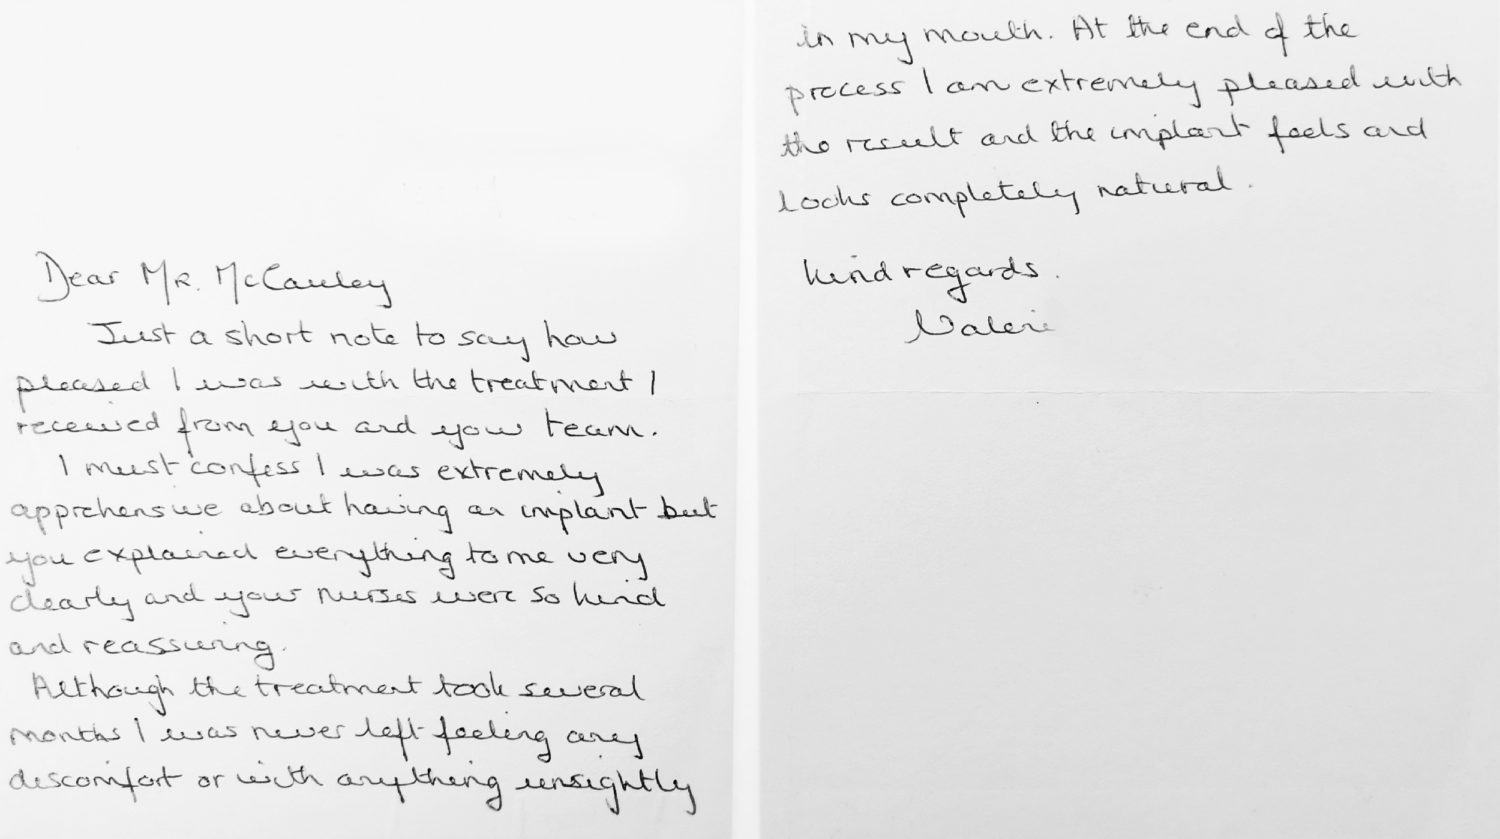 Dear Mr. McCauley
Just a short note to say how
pleased I was with the treatment I
received from you and your team.
I must confess I was extremely
apprehensive about having an implant but
you explained everything to me very
clearly and your nurses were so kind
and reassuring.
Although the treatment took several
months I was never left feeling any
discomfort or with anything unsightly
in my mouth. At the end of the
process I am extremely pleased with
the result and the implant feels and
looks completely natural.
Kind regards.
Valerie